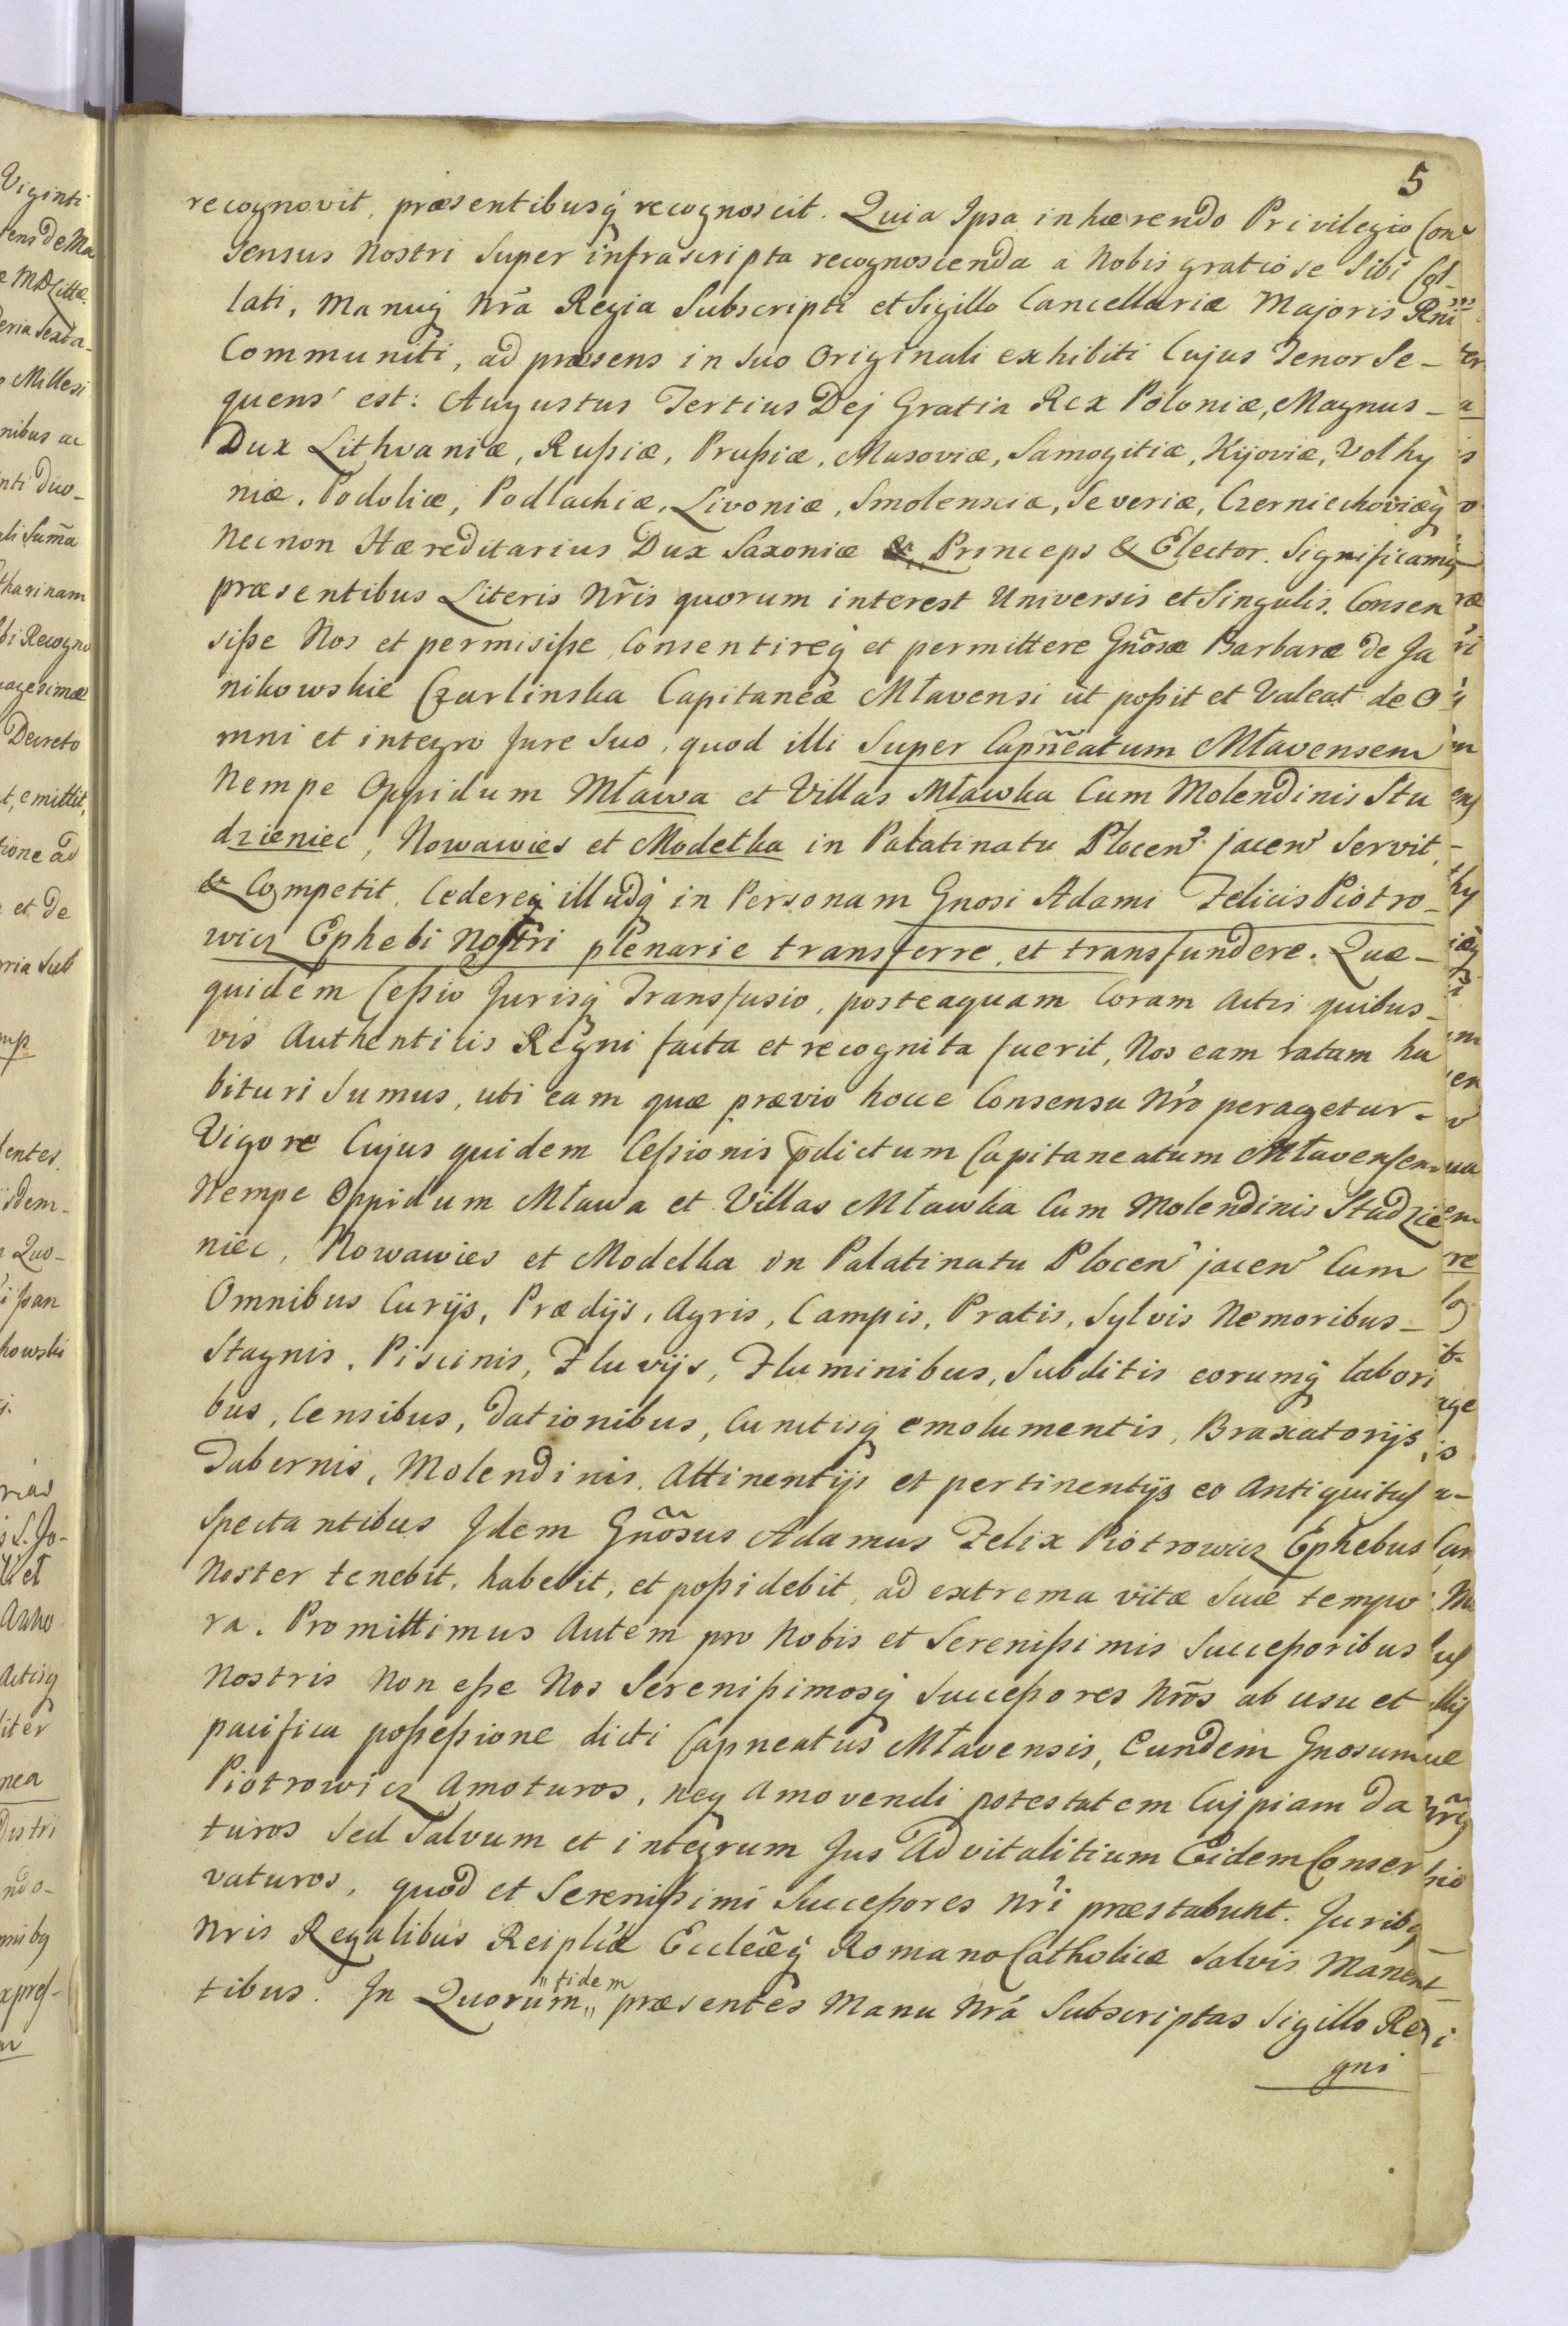 5
recognovit, præsentibusq́ recognoscit. Quia Ipsa inhærendo Privilegio Con-
sensus Nostri Super infrascripta recognoscenda a Nobis gratiose Sibi Col-
lati, Manuq́ Nr̃a Regia Subscripti et Sigillo Cancellariæ Majoris Rni
Communiti, ad præsens in suo Originali exhibiti Cujus Tenor Se-
quens est: Augustus Tertius Dej Gratia Rex Poloniæ, Magnus-
Dux Lithvaniæ, Rußiæ, Prußiæ, Masoviæ, Samogitiæ, Kijoviæ, Volhy
niæ, Podoliæ, Podlachiæ, Livoniæ, Smolensciæ, Severiæ, Czerniechoviæq́
Necnon Hæreditarius Dux Saxoniæ & Princeps & Elector. Significamq
præsentibus Literis Nr̃is quorum interest Universis et Singulis. Consen
siße Nos et permisiße, Consentireq́ et permittere Gñosæ Barbaræ de Ja
nikowskie Czarlinska Capitaneæ Mławensi ut poßit et Valeat de O
mni et integro Jure Suo, quod illi Super Capñeatum Mławensem
Nempe Oppidum Mława et Villas Mławka Cum Molendinis Stu
dzieniec, Nowawies et Modełka in Palatinatu Plocen' jacen' Servit,
& Competit, Cedereq́ illudq́ in Personam Gnosi Adami Felicis Piotro-
wicz Ephebi Nostri plenarie transferre, et transfundere. Quæ-
quidem Ceßio Jurisq́ Transfusio, posteaquam Coram Actis quibus-
vis Authenticis Regni facta et recognita fuerit, Nos eam ratam ha
bituri Sumus, uti eam quæ prævio hocce Consensu Nr̃o peragetur-
Vigore Cujus quidem Ceßionis p̃dictum Capitaneatum Mławensem
Nempe Oppidum Mława et Villas Mławka Cum Molendinis Studzie
niec, Nowawies et Modelka in Palatinatu Plocen' jacen' Cum
Omnibus Curijs, Prædijs, Agris, Campis, Pratis, Sylvis Nemoribus-
Stagnis, Piscinis, Fluvijs, Fluminibus, Subditis eorumq́ labori
bus, Censibus, dationibus, Cunctisq́ emolumentis, Braxatorijs,
Tabernis, Molendinis, Attinentijs et pertinentijs eo Antiquitus
Spectantibus Idem Gñosus Adamus Felix Piotrowicz Ephebus
Noster tenebit, habebit, et poßidebit, ad extrema vitæ Suæ tempo
ra. Promittimus Autem pro Nobis et Serenißimis Succeßoribus
Nostris Non eße Nos Serenißimosq́ Succeßores Nr̃os ab usu et
pacifica poßeßione dicti Capneatus Mławensis, Eundem Gnosum
Piotrowicz Amoturos, neq Amovendi potestatem Cujpiam da
turos Sed Salvum et integrum Jus Advitalitium Eidem Conser
vaturos, quod et Serenißimi Succeßores Nr̃i præstabunt. Juribq
Nris Regalibus Reiplicæ Ecclæq́ Romano Catholicæ Salvis Manen-
tibus. In Quorum „fidem„ præsentes Manu Nrá Subscriptas Sigillo Re
gni